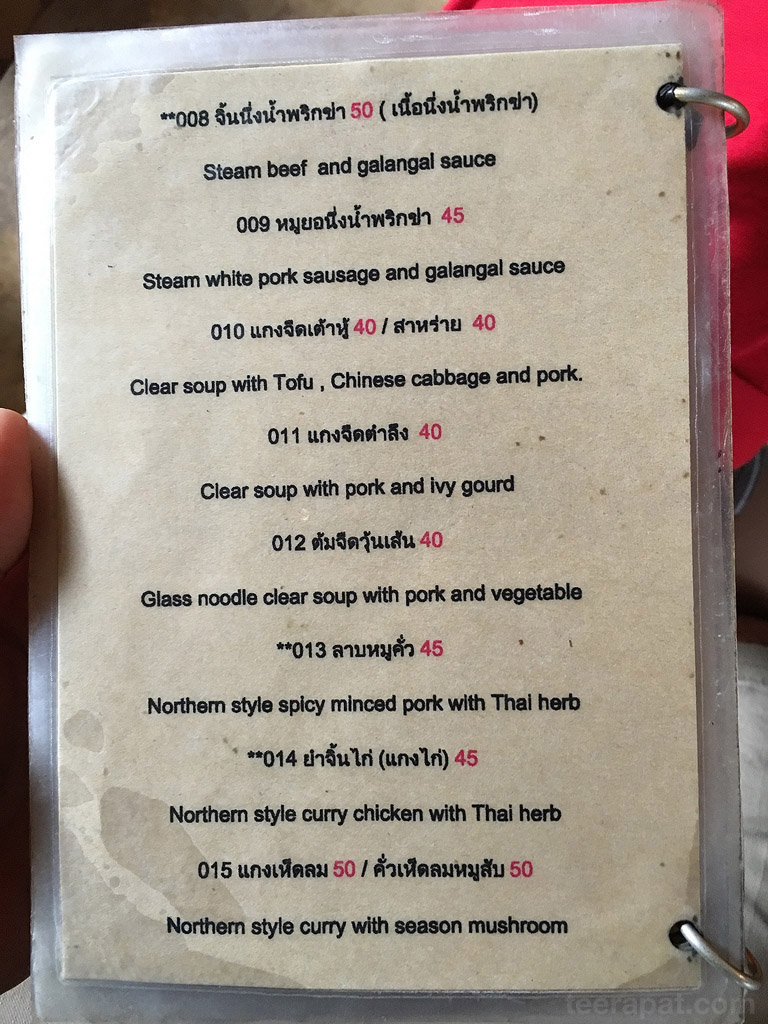 **008 จิ้นนึ่งน้ำพริกข่า 50 ( เนื้อนึ่งน้ำพริกข่า)
Steam beef and galangal sauce
009 หมูยอนึ่งน้ำพริกข่า 45
Steam white pork sausage and galangal sauce
010 แกงจืดเต้าหู้ 40 / สาหร่าย 40
Clear soup with Tofu , Chinese cabbage and pork.
011 แกงจืดตำลึง 40
Clear soup with pork and ivy gourd
012 ต้มจืดวุ้นเส้น 40
Glass noodle clear soup with pork and vegetable
**013 ลาบหมูคั่ว 45
Northern style spicy minced pork with Thai herb
**014 ยำจิ้นไก่ (แกงไก่) 45
Northern style curry chicken with Thai herb
015 แกงเห็ดลม 50 / คั่วเห็ดลมหมูสับ 50
Northern style curry with season mushroom
teerapat.com